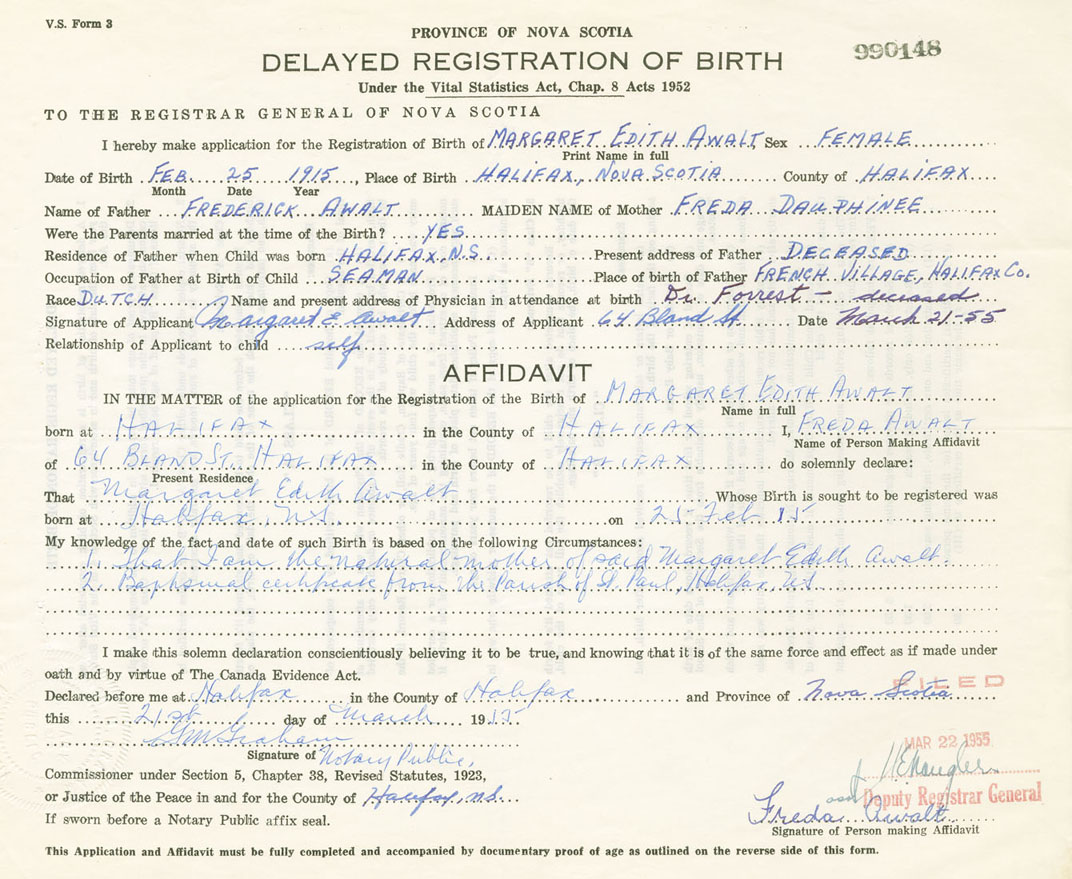 V.S. Form 3
PROVINCE OF NOVA SCOTIA
DELAYED REGISTRATION OF BIRTH
990148
Under the Vital Statistics Act, Chap. 8 Acts 1952
TO THE REGISTRAR GENERAL OF NOVA SCOTIA
I hereby make application for the Registration of Birth of MARGARET EDITH AWALT Sex FEMALE
Print Name in full
Date of Birth FEB. 25 1915, Place of Birth HALIFAX, NOVA SCOTIA County of HALIFAX
Month Date Year
Name of Father FREDERICK AWALT MAIDEN NAME of Mother FREDA DAUPHINEE
Were the Parents married at the time of the Birth? YES
Residence of Father when Child was born HALIFAX, N.S. Present address of Father DECEASED
Occupation of Father at Birth of Child SEAMAN Place of birth of Father FRENCH VILLAGE, HALIFAX Co.
Race DUTCH Name and present address of Physician in attendance at birth Dr. Forrest - deceased
Signature of Applicant Margaret E Awalt Address of Applicant 64 Bland St. Date March 21-55
Relationship of Applicant to child self
AFFIDAVIT
IN THE MATTER of the application for the Registration of the Birth of MARGARET EDITH AWALT
Name in full
born at HALIFAX in the County of HALIFAX I, FREDA AWALT
Name of Person Making Affidavit
of 64 BLAND ST. HALIFAX in the County of HALIFAX do solemnly declare:
Present Residence
That Margaret Edith Awalt Whose Birth is sought to be registered was
born at Halifax, N.S. on 25 Feb 15
My knowledge of the fact and date of such Birth is based on the following Circumstances:
1. That I am the natural mother of said Margaret Edith Awalt.
2. Baptismal certificate from the Parish of St. Paul, Halifax, NS
I make this solemn declaration conscientiously believing it to be true, and knowing that it is of the same force and effect as if made under
oath and by virtue of The Canada Evidence Act.
Declared before me at Halifax in the County of Halifax and Province of Nova Scotia
FILED
this 21st day of March 1955
MAR 22 1955
GM Graham
Signature of Notary Public,
Commissioner under Section 5, Chapter 38, Revised Statutes, 1923,
Deputy Registrar General
or Justice of the Peace in and for the County of Halifax, N.S.
Freda Awalt
If sworn before a Notary Public affix seal.
Signature of Person making Affidavit
This Application and Affidavit must be fully completed and accompanied by documentary proof of age as outlined on the reverse side of this form.